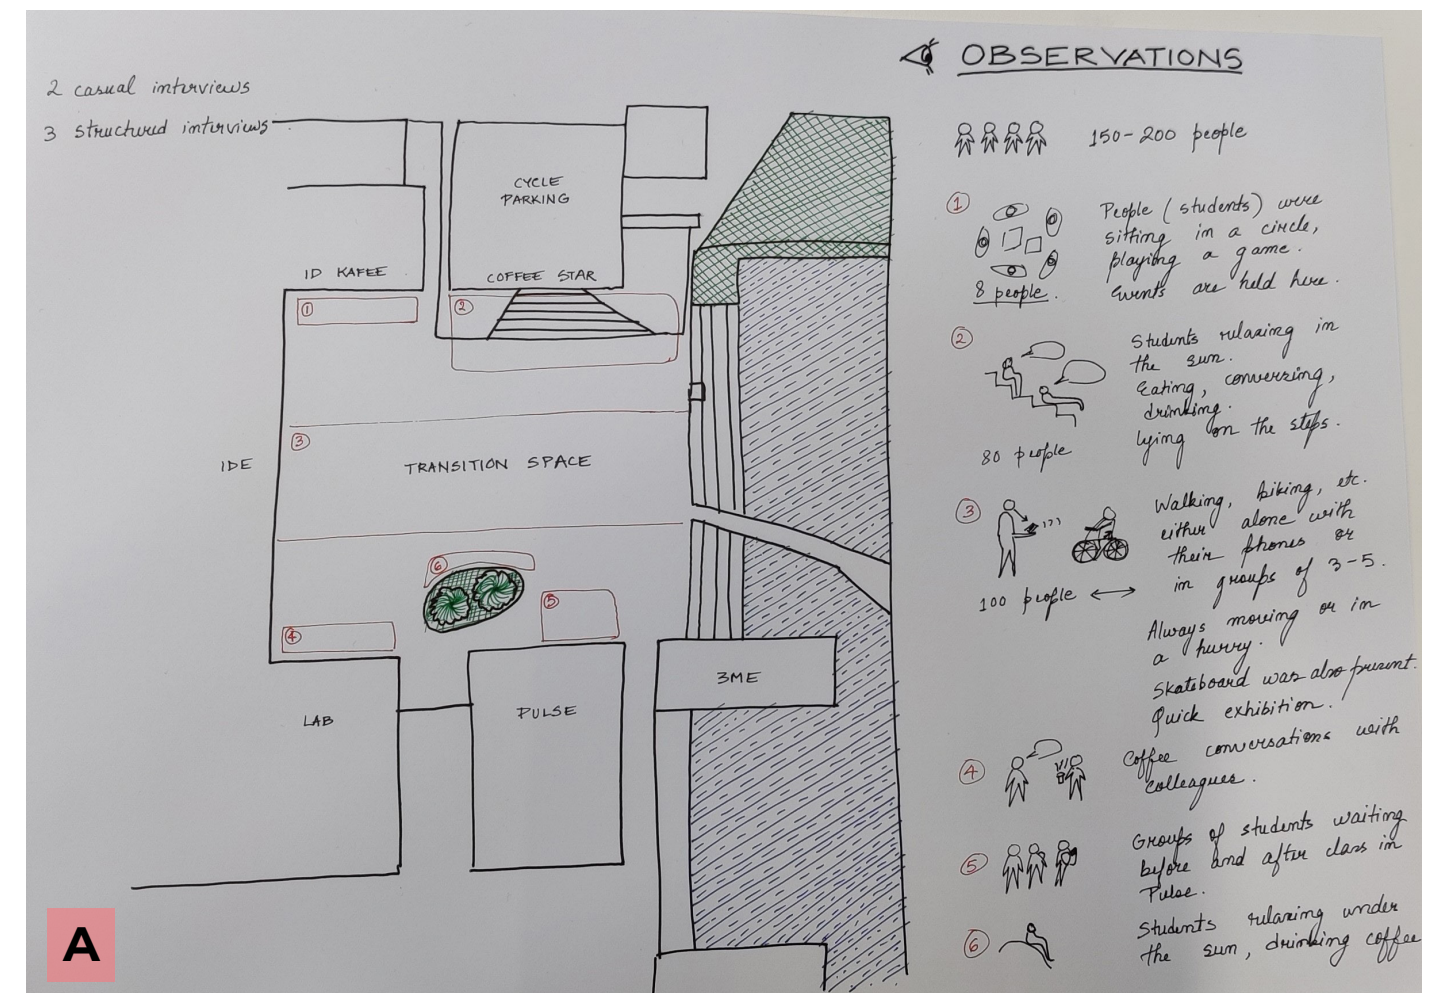 2 casual interviews
3 structured interviews
CYCLE
PARKING
ID KAFEE
COFFEE STAR
1
2
3
IDE
TRANSITION SPACE
6
5
4
LAB
PULSE
3ME
A
OBSERVATIONS
150-200 people
1
People (students) were
sitting in a circle,
playing a game.
Events are held here.
8 people.
2
Students relaxing in
the sun.
Eating, conversing,
drinking.
lying on the steps.
80 people
3
Walking, biking, etc.
either alone with
their phones or
in groups of 3-5.
100 people
Always moving or in
a hurry.
Skateboard was also present.
Quick exhibition.
4
Coffee conversations with
colleagues.
5
Groups of students waiting
before and after class in
Pulse.
6
Students relaxing under
the sun, drinking coffee